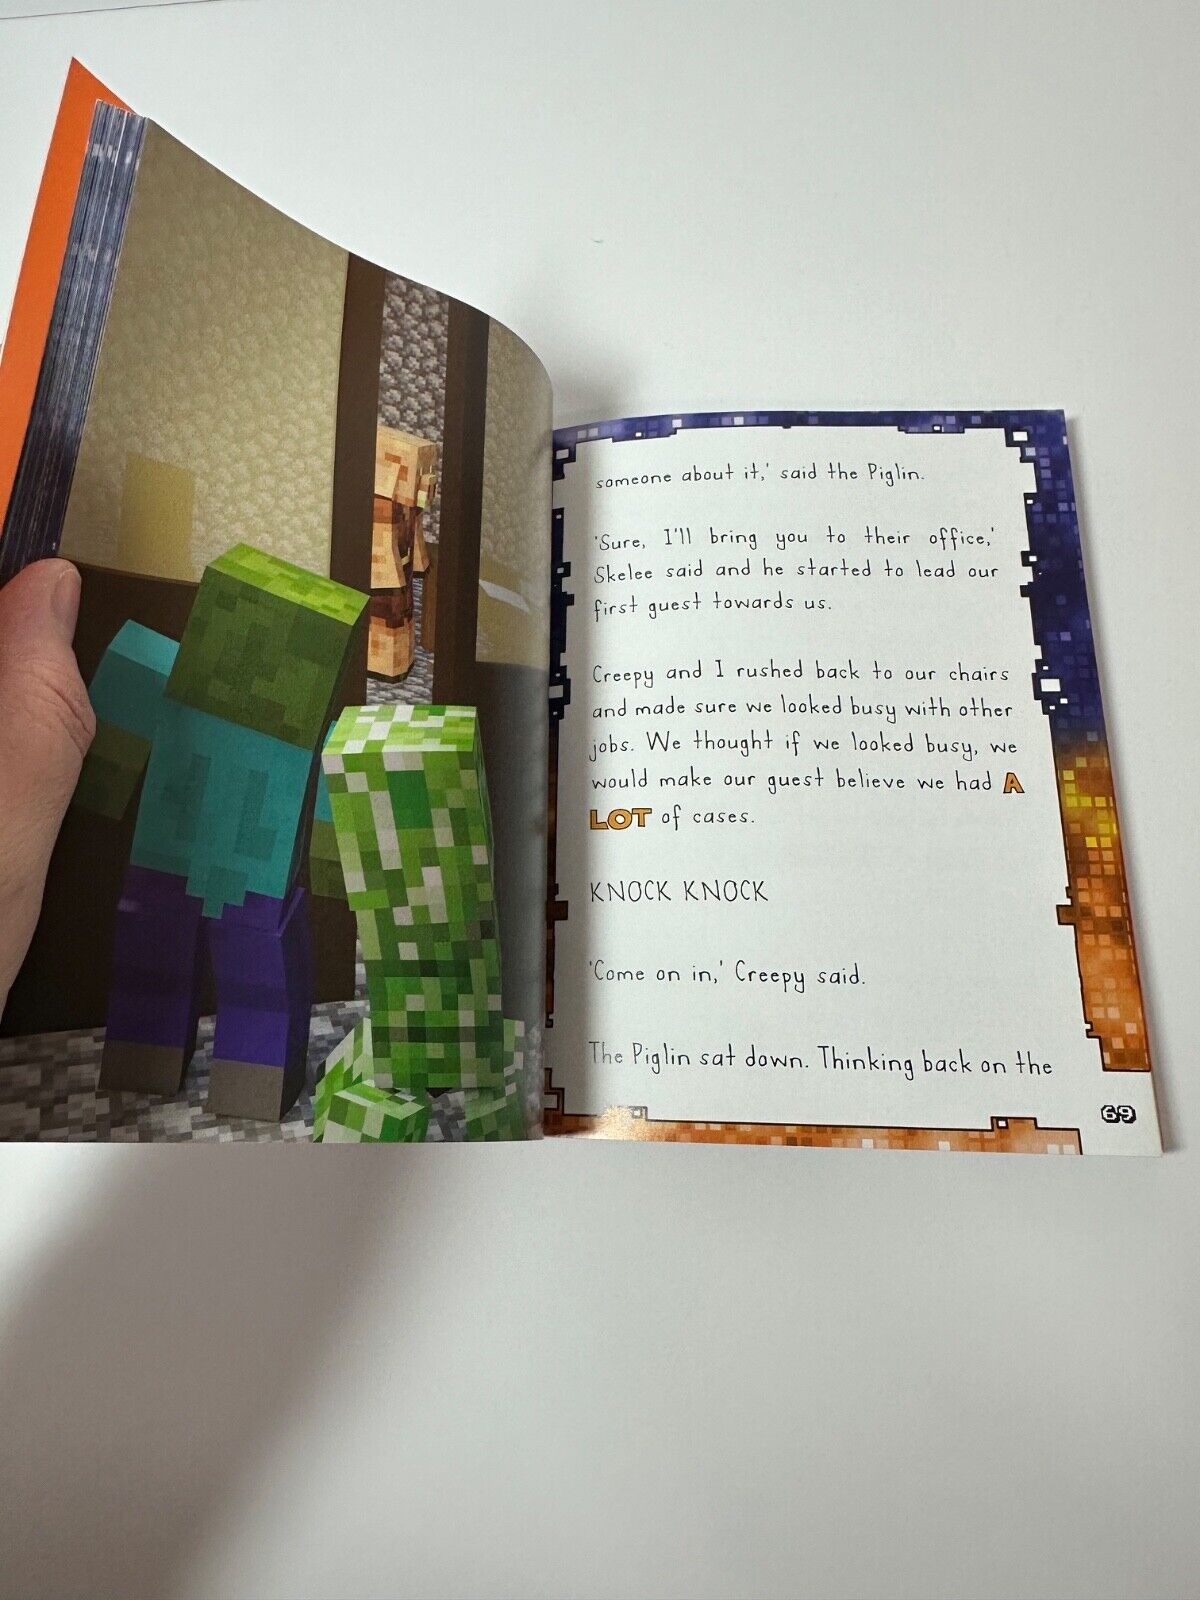 someone about it,' said the Piglin.
'Sure, I'll bring you to their office,'
Skelee said and he started to lead our
first guest towards us.
Creepy and I rushed back to our chairs
and made sure we looked busy with other
jobs. We thought if we looked busy, we
would make our guest believe we had A
LOT of cases.
KNOCK KNOCK
'Come on in,' Creepy said.
The Piglin sat down. Thinking back on the
69